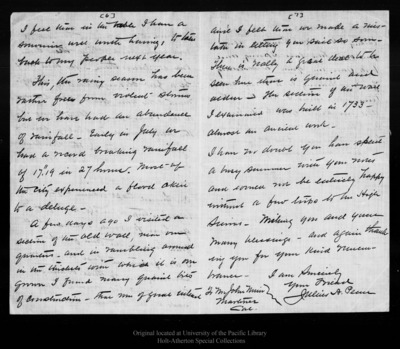 (6)
I feel that in the table I have a
souvenir well worth having, to take
back to my
next year.
This, the rainy season has been
rather free from violent storms
but we have had an abundance
of rainfall - Early in July we
had a record breaking rainfall
of 17.19 in 27 hours. Most of
the city experienced a flood akin
to a deluge -
A few days ago I visited a
section of the old wall near our
quarters - and in rambling around
in the thickets with which it is over
grown I found many quaint bits
of construction - that are of great interest
(7)
and I felt that we made a mis-
take in letting you sail so soon -
There is really a great deal to be
seen here
The section of the wall
I examined was built in 1733 -
almost an ancient work -
I have no doubt you have spent
a busy summer with your notes
and would not be entirely happy
without a few trips to the High
Sierras - Wishing you and yours
many blessings - and again thank
ing you for your kind remem-
brance - I am Sincerely
Your Friend
To Mr John Muir
Martinez
Cal.
Original located at University of the Pacific Library
Holt-Atherton Special Collections